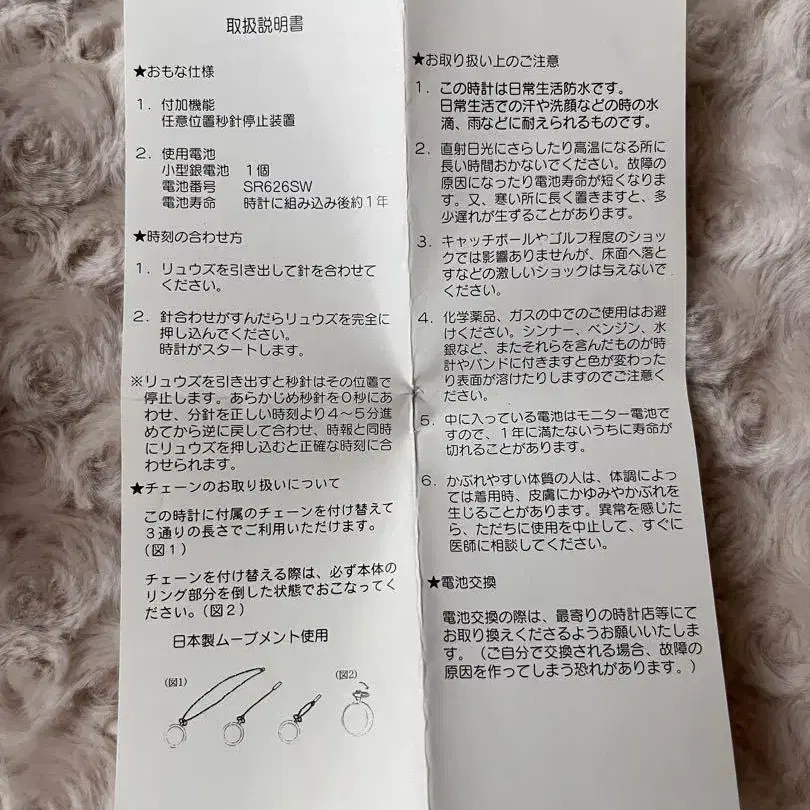 取扱説明書
★おもな仕様
1. 付加機能
任意位置秒針停止装置
2. 使用電池
小型銀電池 1個
電池番号 SR626SW
電池寿命 時計に組み込み後約1年
★時刻の合わせ方
1. リュウズを引き出して針を合わせて
ください。
2. 針合わせがすんだらリュウズを完全に
押し込んでください。
時計がスタートします。
※リュウズを引き出すと秒針はその位置で
停止します。あらかじめ秒針を0秒にあ
わせ、分針を正しい時刻より4〜5分進
めてから逆に戻して合わせ、時報と同時
にリュウズを押し込むと正確な時刻に合
わせられます。
★チェーンのお取り扱いについて
この時計に付属のチェーンを付け替えて
3通りの長さでご利用いただけます。
(図1)
チェーンを付け替える際は、必ず本体の
リング部分を倒した状態でおこなってく
ださい。(図2)
日本製ムーブメント使用
(図1)
(図2)
★お取り扱い上のご注意
1. この時計は日常生活防水です。
日常生活での汗や洗顔などの時の水
滴、雨などに耐えられるものです。
2. 直射日光にさらしたり高温になる所に
長い時間おかないでください。故障の
原因になったり電池寿命が短くなりま
す。又、寒い所に長く置きますと、多
少遅れが生ずることがあります。
3. キャッチボールやゴルフ程度のショッ
クでは影響ありませんが、床面へ落と
すなどの激しいショックは与えないで
ください。
4. 化学薬品、ガスの中でのご使用はお避
けください。シンナー、ベンジン、水
銀など、またそれらを含んだものが時
計やバンドに付きますと色が変わった
り表面が溶けたりしますのでご注意く
ださい。
5. 中に入っている電池はモニター電池で
すので、1年に満たないうちに寿命が
切れることがあります。
6. かぶれやすい体質の人は、体調によっ
ては着用時、皮膚にかゆみやかぶれを
生じることがあります。異常を感じた
ら、ただちに使用を中止して、すぐに
医師に相談してください。
★電池交換
電池交換の際は、最寄りの時計店等にて
お取り換えくださるようお願いいたしま
す。(ご自分で交換される場合、故障の
原因を作ってしまう恐れがあります。)